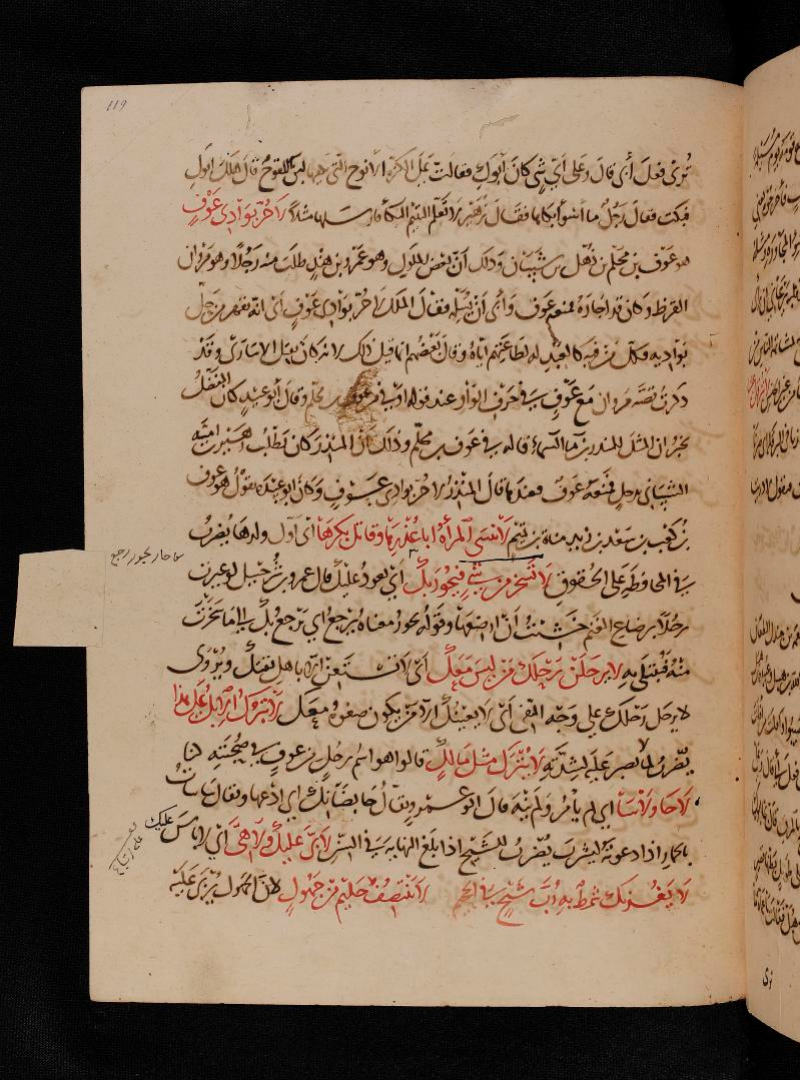 119
ترى فعل أبى قال وعلى اىّ شى كان أبوك فقالت على الكرة الانوح التى لبن اللقوح قال هلك ابوك
فبكت فقال رجل ما أسوأ بكاها فقال زهير لا تعلم اليتيم البكأ فارسلها مثلا لا حرّ بوادى عوف
هو عوف بن محلم بن ذهل بن شيبان وذاك أنّ بعض الملوك وهو عمرو بن هند طلب منه رجلا وهو مروان
القرظ وكان قد اجاره فمنعه عوف وأبى أن يسلمه فقال الملك لا حرّ بوادى عوف أى انه يقهر من حلّ
بواديه فكل من فيه كالعبد له لطاعتهم اياه وقال بعضهم انما قيل ذلك لانه كان يقتل الاسارى وقد
ذكرت قصة مروان مع عوف فى حرف الواو عند قوله اوفى من عوف بن محلم وقال أبو عبيد كان المفضل
يخبر ان المثل للمنذر بن ما السماء قاله فى عوف بن محلم وذاك أنّ المنذر كان يطلب زهير بن امية
الشيبانى بدخل فمنعه عوف فعندها قال المنذر لا حرّ بوادى عوف وكان ابو عبيدة يقول هو عوف
بن كعب بن سعد بن زيد مناة بن تميم لا تنسى المرأة ابا عذرها وقاتل بكرها أى اول ولدها يضرب
فى المحافظة على الحقوق لا تسخر من شىء فيحور بك أى يعود عليك قال عمرو بن شرحبيل لو عيرت
رجلا برضاع الغنم خشيت أن ارضعها وقوله يحور معناه يرجع أى يرجع بك
ما حار يحور رجع
منه فتبتلى به لا يرحلن رحلك من ليس معك أى لا تستعن الا باهل ثقتك ويروى
لا يرحل رحلك على وجه النفى أى لا يعينك الا من يكون صغوه معك لا تبرك الابل على هذا
يضرب لما لا يصبر عليه لشدته لا ينزل مثل مالك قالوا هو اسم رجل من عوف فى صحبته
لا حا ولا سأ اى لم يأمر ولم ينه قال ابو عمرو يقال حا بضانك اى ادعها ويقال سأسأت
بالحمار اذا دعوته ليشرب يضرب للشيخ اذا بلغ النهاية فى السن لا بىّ عليك ولا هىّ أى لا باس عليك
لا يغرنك شمط به رب شيخ فى لا ينتصف حليم من جهول لان الجهول يربى عليه